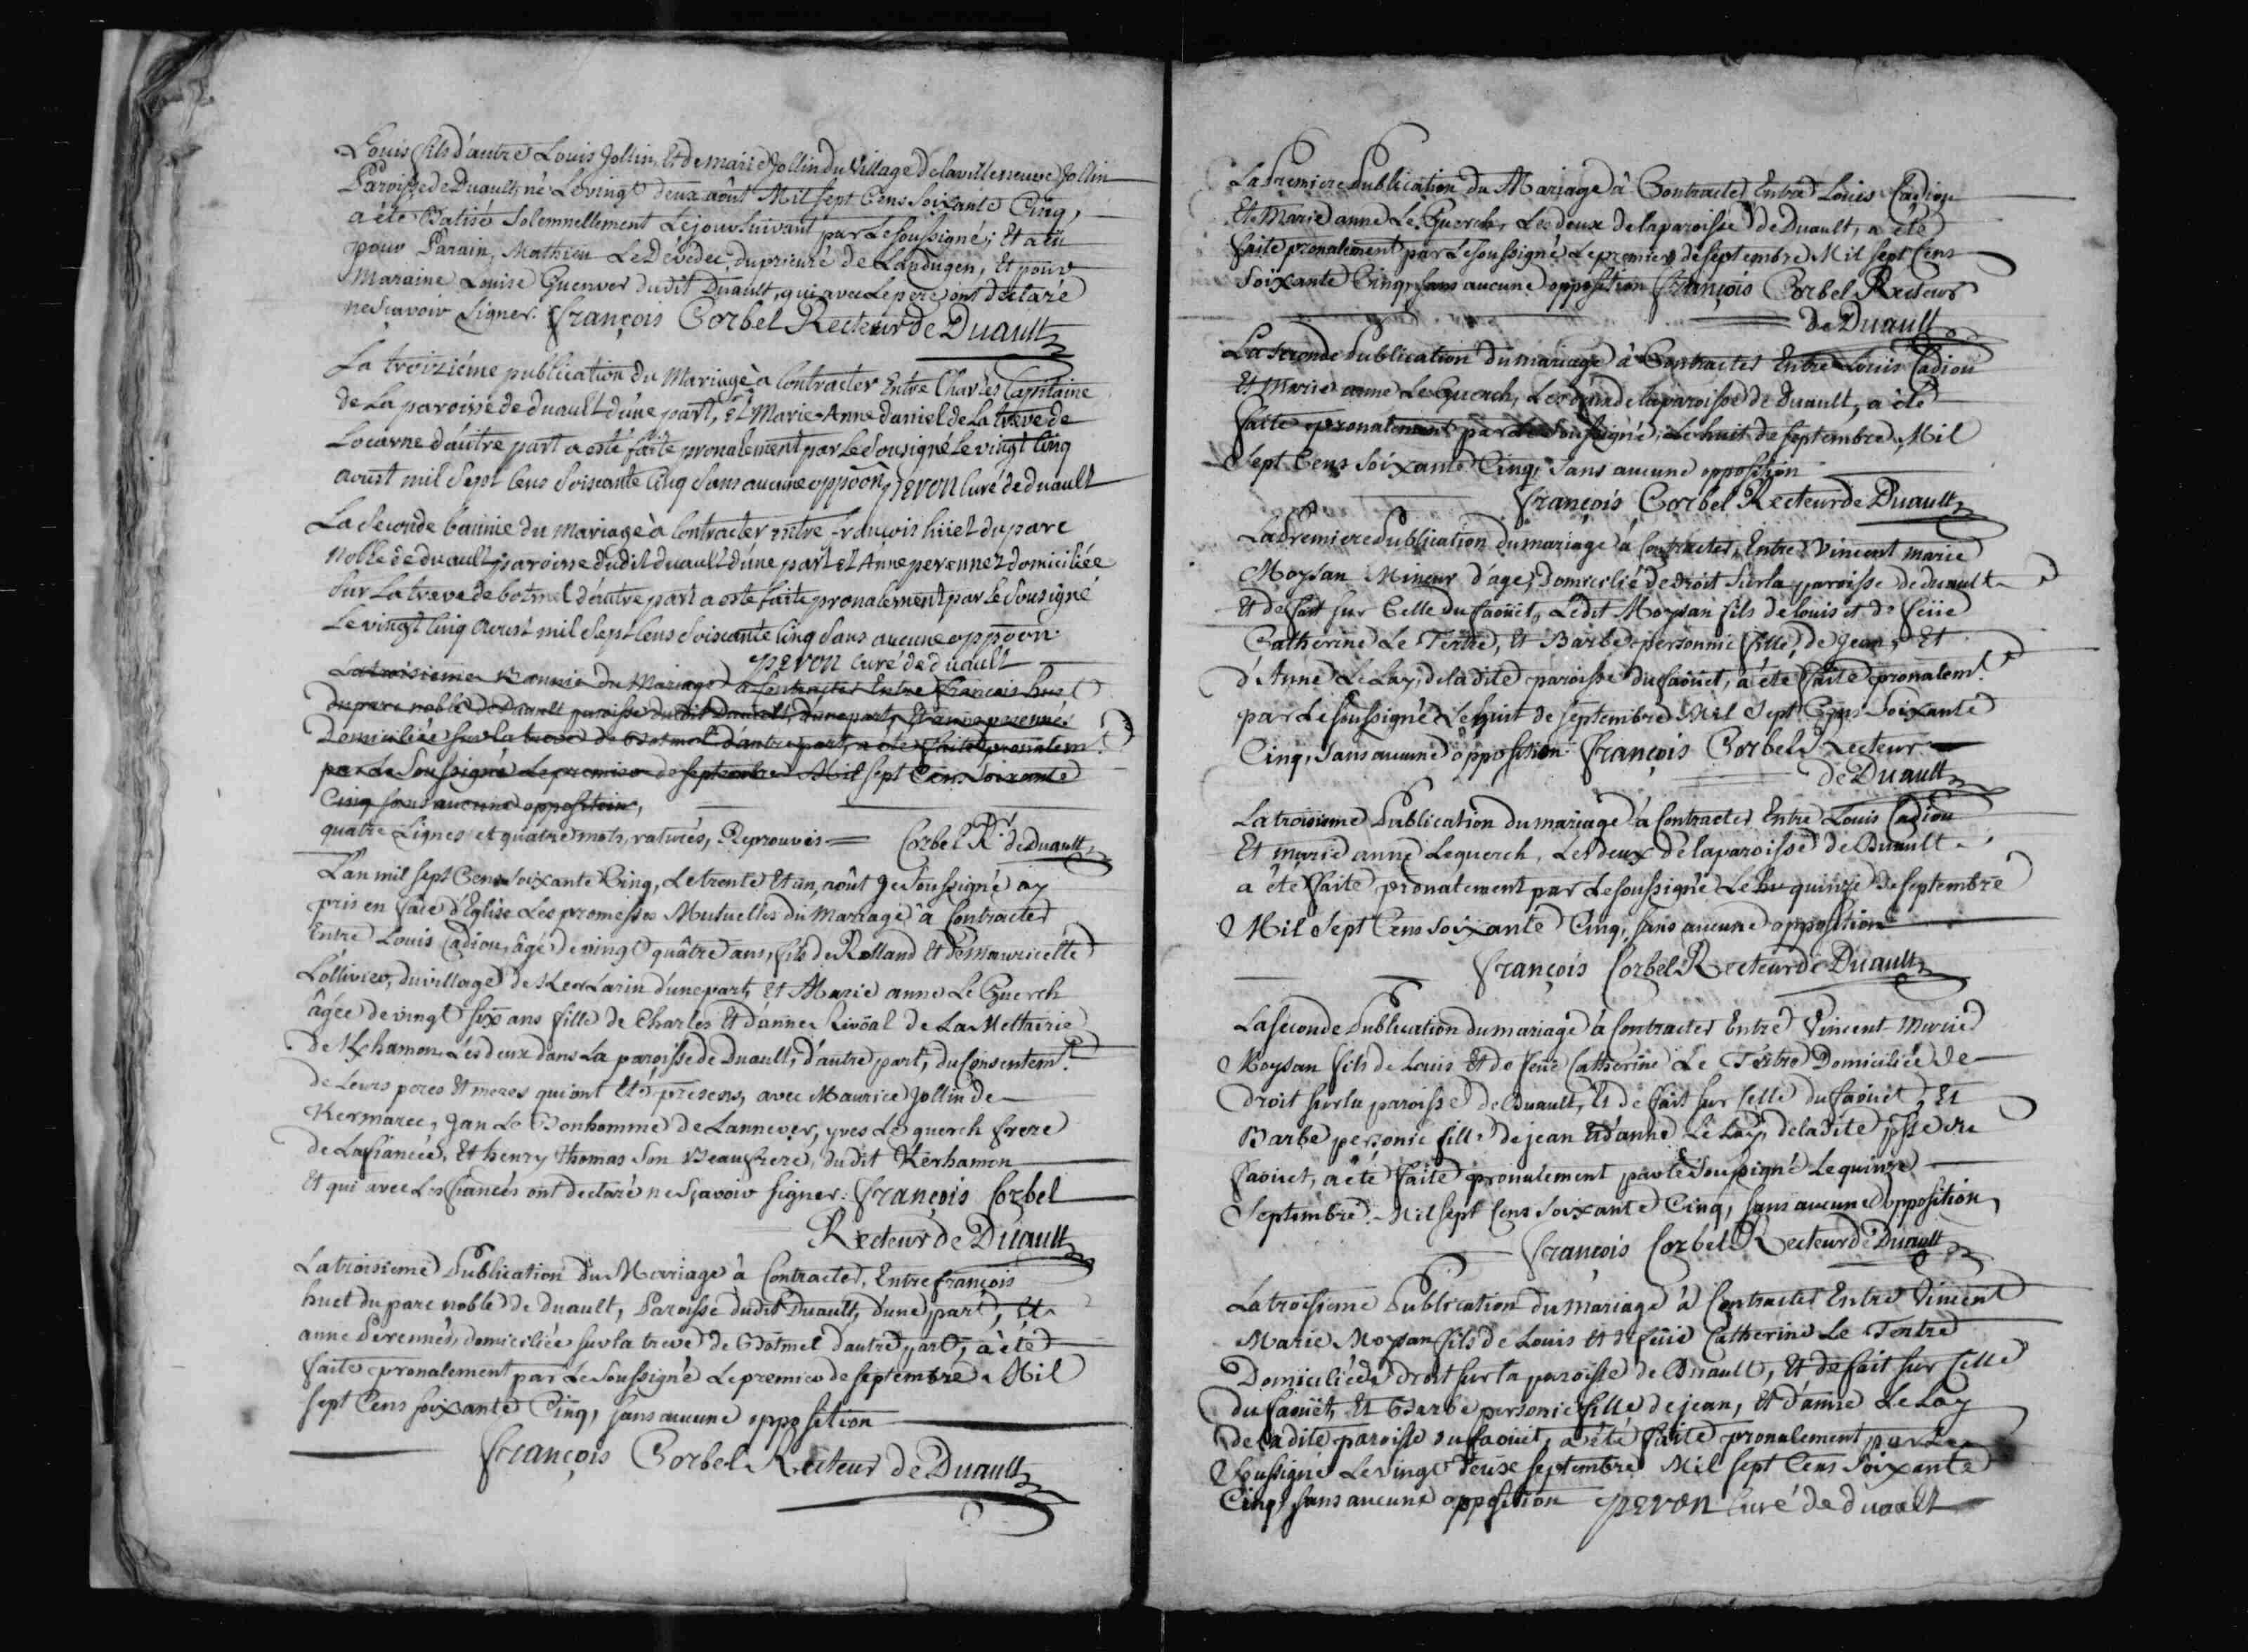 Louis fils d'autre Louis Jollin, Et de marie Jollin du Village de lavilleneuve Jollin
Paroisse de Duault, né Le vingt deux août Mil sept Cens soixante Cinq,
a été Batisé solemnellement Le jour suivant par Le soussigné; Et a eu
pour Parain, Mathieu Le Dévédec, du prieuré de Landugen, et pour
Maraine Louise Guenver dudit Duault, qui avec Le pere ont declaré
ne sçavoir signer. françois Corbel Recteur de Duault
La troiziéme publication du Mariage à Contracter Entre Charles Capitaine
de La paroisse de duault d'une part, et Marie-Anne daniel de La treve de
Locarne d'autre part a esté faite pronalement par Le Sousigné le vingt Cinq
aoust mil Sept Cens Soiscante Cinq Sans aucune oppôon, peron Curé de duault
La Seconde bannie du Mariage à Contracter entre francois hüet du parc
Noble de duault paroisse dudit duault d'une part et Anne perennez domiciliée
Sur La treve de botmel d'autre part a esté faite pronalement par le Sousigné
Le vingt Cinq Aoust mil Sept Cens Soiscante Cinq Sans aucune oppôon
peron curé de duault
La troisieme Bannie du Mariage a Contracter Entre francois huet
du parc noble de Duault paroisse dudit Duault, d'une part, Et anne perennés
Domiciliée sur la treve de Botmel d'autre part, a été faite pronalem.t
par Le Soussigné Le premier de septembre Mil sept Cens Soixante
Cinq sans aucune opposition,
quatre Lignes et quatre mots raturés, Reprouvés = Corbel R.r de Duault
L'an mil sept Cens soixante Cinq, Le trente Et un août Je Soussigné ay
pris en face d'Eglise Les promesses Mutuelles du Mariage à Contracter
Entre Louis Cadiou, âgé de vingt quâtre ans, fils de Rolland Et de Mauricette
L'ollivier, du village de Kerlarin d'une part, Et Marie anne Le Guerch
âgée de vingt six ans fille de Charles Et d'anne Rivoal de La Mettairie
de Khamon Les deux dans La paroisse de Duault, d'autre part, du Consentem.t
de Leurs peres Et meres qui ont Eté presens, avec Maurice Jollin de
Kermarec, Jan Le Bonhomme de Lannever, yves Le querch frere
de La fiancée, Et henry thomas Son Beaufrere, dudit Kerhamon
Et qui avec Les fiancés ont declaré ne sçavoir signer: françois Corbel
Recteur de Duault
La troisieme Publication du Mariage à Contracter, Entre françois
huet du parc noble de Duault, Paroisse dudit Duault, d'une part, Et
anne Perennés, domiciliée sur la treve de Botmel d'autre part, a été
faite pronalement par Le Soussigné Le premier de septembre Mil
sept Cens soixante Cinq, sans aucune opposition
françois Corbel Recteur de Duault
La Premiere Publication du Mariage à Contracter, Entre Louis Cadiou
Et Marie anne Le Guerch, Les deux de la paroisse de Duault, a été
faite pronalement par Le soussigné Le premier de septembre Mil sept Cens
Soixante Cinq, sans aucune opposition françois Corbel Recteur
de Duault
La seconde Publication du mariage à Contracter Entre Louis Cadiou
Et Marie anne Le Guerch, Les deux de la paroisse de Duault, a été
faite pronalement par Le Soussigné, Le huit de septembre, Mil
Sept Cens Soixante Cinq, sans aucune opposition
françois Corbel Recteur de Duault
La Premiere Publication du mariage à Contracter, Entre Vincent marie
Moysan Mineur d'age, domicilié de droit sur la paroisse de duault
Et de fait sur Celle du faoüet, Ledit Moysan fils de louis et de feüe
Catherine Le Tertre, Et Barbe personnic fille, de Jean, Et
d'Anne Le Lay, de ladite paroisse du faoüet, a été faite pronalem.t
par Le soussigné Le huit de septembre Mil Sept Cens Soixante
Cinq, sans aucune opposition françois Corbel Recteur
de Duault
La troisieme Publication du mariage à Contracter Entre Louis Cadiou
Et marie anne Lequerch, Les deux de la paroisse de Duault
a été faite pronalement par Le soussigné Le quinze de septembre
Mil sept Cens soixante Cinq, sans aucune opposition
françois Corbel Recteur de Duault
La seconde Publication du mariage à Contracter Entre Vincent Marie
Moysan fils de Louis Et de feüe Catherine Le Tertre Domiciliée de
Droit sur la paroisse de Duault, Et de fait sur Celle du faoüet, Et
Barbe personic fille de jean Et d'anne Le Lay, de ladite psse du
faouet, a été faite pronalement par le Soussigné Le quinze
Septembre Mil sept Cens soixante Cinq, sans aucune opposition
françois Corbel Recteur de Duault
La troisieme Publication du mariage à Contracter Entre Vincent
Marie Moysan fils de Louis Et de feüe Catherine Le Tertre
Domicilié de droit sur la paroisse de Duault, Et de fait sur Celle
du faoüet, Et Barbe personic fille de jean, Et d'anne Le Lay
de ladite paroisse du faouet, a été faite pronalement par Le
Soussigné Le vingt deuse septembre Mil sept Cens Soixante
Cinq, sans aucune opposition peron Curé de duault